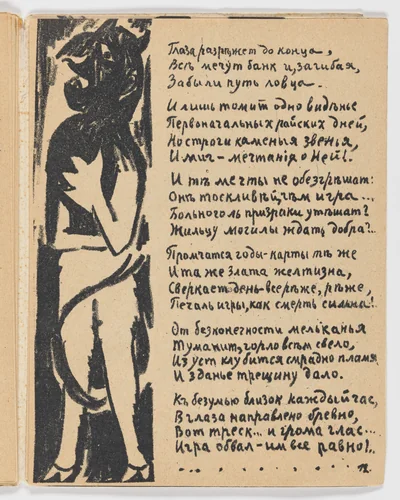 Глаза разрѣжет до конца,
Всѣ мечут банк и, загибая,
Забыли путь ловца.
И лишь томит одно видѣнье
Первоначальных райских дней,
Но строги каменыя звенья,
И миг – мечтанія о Ней!.
И тѣ мечты не обезгрѣшат:
Онѣ тоскливѣй, чѣм игра...
Больного ль призраки утѣшат?
Жильцу могилы ждать добра?..
Промчатся годы-карты тѣ же
И та же злата желтизна,
Сверкает день-все рѣже, рѣже,
Печаль игры, как смерть сильна!
От безконечности мельканья
Туманит, горло всѣм свело,
Из уст клубится смрадно пламя
И зданье трещину дало.
Къ безумью близок каждый час,
В глаза направлено бревно,
Вот треск... и грома глас...
Игра обвал-им все равно!..